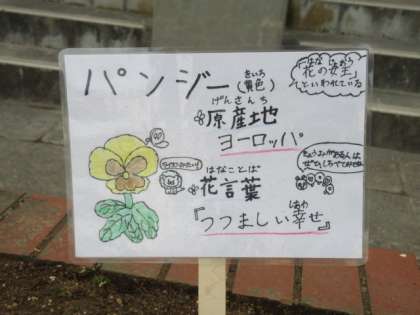 パンジー(黄色)
きいろ
「花の女王」
といわれている
げんさんち
原産地
ヨーロッパ
はなことば
花言葉
しあわ
『つつましい幸せ』